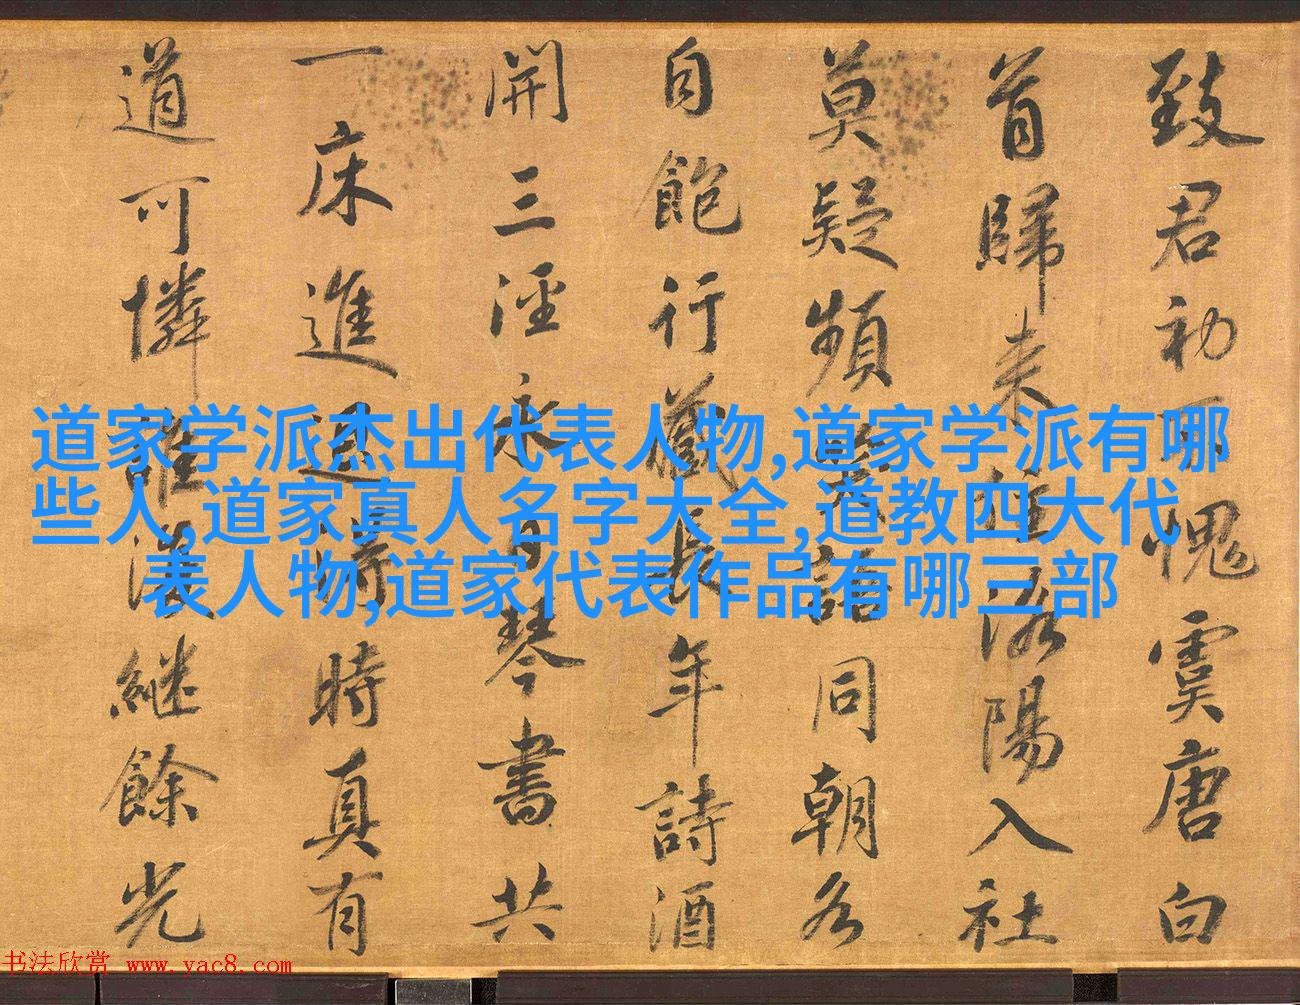 致君初愧虞唐白
首歸来洛陽入社
莫疑頻語同朝各
自飽行藏長年詩酒
開三涇永日琴書共
一床進退時真有
道可憐誰継餘光
道家学派杰出代表人物,道家学派有哪
些人,道家真人名字大全,道教四大代
表人物,道家代表作品有哪三部
书法欣赏 www.yac8.com